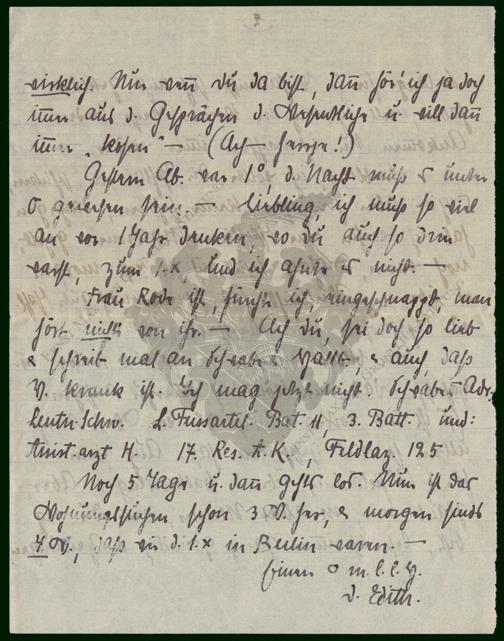 wirklich. Nur wenn du da bist, dann hör' ich ja doch
immer aus d. Gesprächen d. Wesentliche u. will dann
immer "kosen" — (Ach herrje!)
Gestern Ab. war 1°, d. Nacht muß es unter
0 gewesen sein. — Liebling, ich muß so viel
an vor 1 Jahr denken, wo du auch so drin
warst, zum 1. x, und ich ahnte es nicht. —
Frau Rode ist, fürcht ich, eingeschnappt, man
hört nichts von ihr. — Ach du, sei doch so lieb
& schreib mal an Schwabe &, & auch, daß
V. krank ist. Ich mag jetzt nicht. Schwabes Adr.
Leutn. Schw. L. Fussartel. Bat. 11 3. Batt. und:
Assist. arzt H. 17. Res. A. K., Feldlaz. 125
Noch 5 Tage u. dann gehts los. Nun ist das
Wohnungsuchen schon 3 W. her, & morgen sinds
4 W., daß wir d. 1. x in Berlin waren. —
Einen o m. l. l. 
d. Edith.